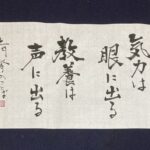 気力は
眼に出る
教養は
声に出る